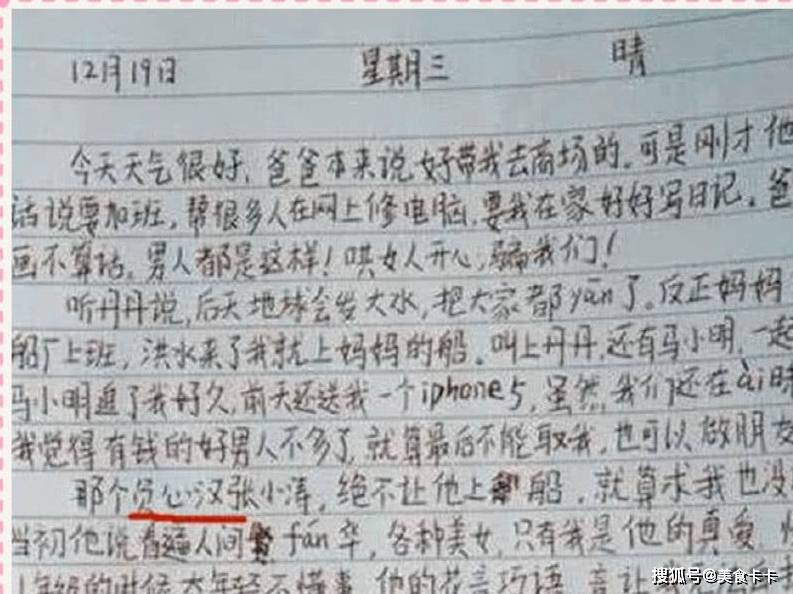 12月19日 星期三 晴
今天天气很好，爸爸本来说好带我去商场的。可是刚才他
话说要加班，帮很多人在网上修电脑，要我在家好好写日记。爸
画不算话。男人都是这样！哄女人开心，骗我们！
听丹丹说，后天地球会发大水，把大家都yān了。反正妈妈
船厂上班，洪水来了我就上妈妈的船。叫上丹丹，还有马小明，一起
马小明追了我好久，前天还送我一个iphone5，虽然，我们还在ài昧
我觉得有钱的好男人不多了，就算最后不能取我，也可以做朋友
那个负心汉张小涛，绝不让他上船，就算求我也没
当初他说看遍人间fán华，各种美女，只有我是他的真爱，
年级的时候太年轻不懂事，他的花言巧语，竟让
搜狐号@美食卡卡